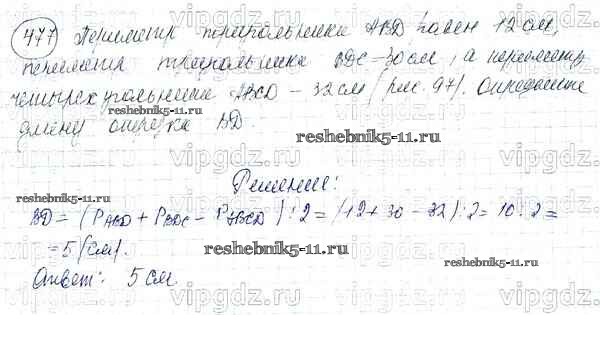 477 Периметр треугольника ABD равен 12 см,
периметр треугольника BDC - 30 см, а периметр
четырехугольника ABCD - 32 см (рис. 97). Определите
длину отрезка BD.
reshebnik5-11.ru
Решение:
reshebnik5-11.ru
BD = (PABD + PBDC - PABCD) : 2 = (12 + 30 - 32) : 2 = 10 : 2 =
= 5 (см).
reshebnik5-11.ru
reshebnik5-11.ru
Ответ: 5 см
vipgdz.ru vipgdz.ru vipgdz.ru